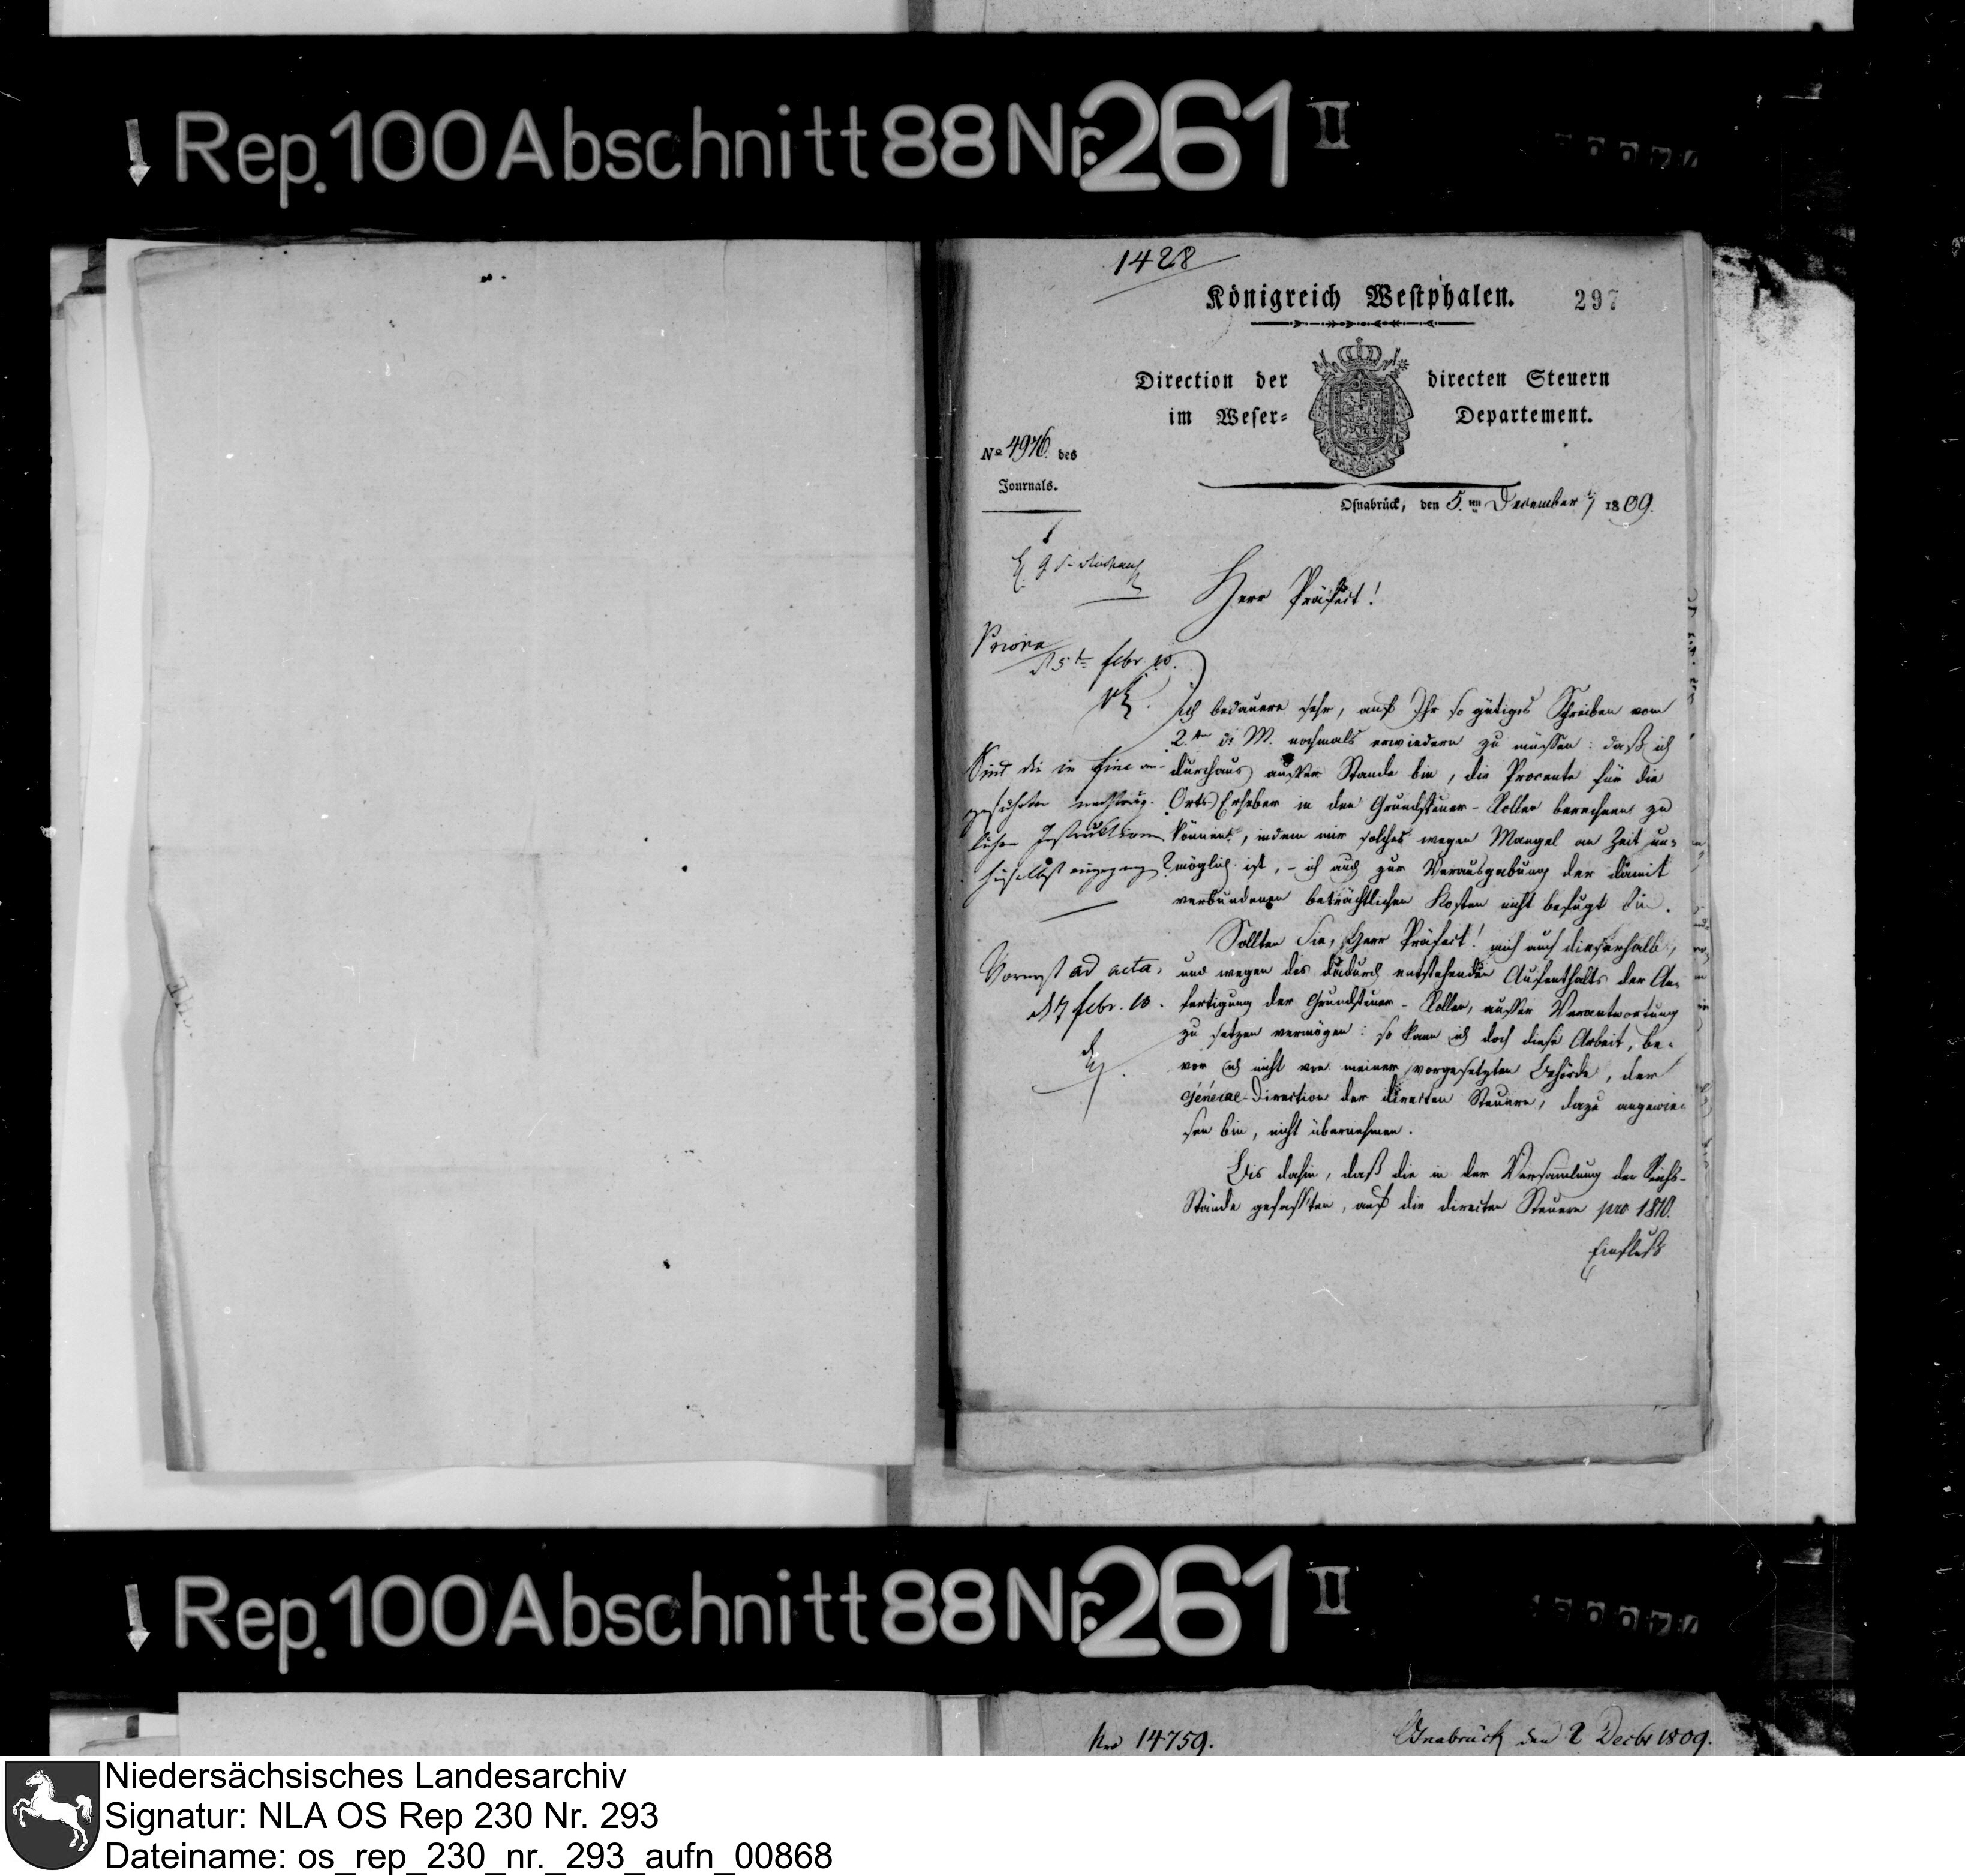 Rep. 100 Abschnitt 88 Nr. 261 II
1428
Königreich Westphalen. 297
Direction der directen Steuern
im Weser- Departement.
No 4976. des
Journals.
Osnabrück, den 5. ten December 1809.
Herr Präfect!
Priora
d 5t febr. 10.
Ich bedauere sehr, auf Ihr so gütiges Schreiben vom
2.ten d. M. nochmals erwiedern zu müssen: daß ich
durchaus ausser Stande bin, die Procente für die
Orts Erheber in den Grundsteuer-Rollen berechnen zu
können, indem mir solches wegen Mangel an Zeit un-
möglich ist, - ich auch zur Verausgabung der damit
verbundenen beträchtlichen Kosten nicht befugt bin.
Sind die in fine an-
geführten nachträg-
lichen Instructionen
hieselbst eingegangen?
Sollten Sie, Herr Präfect! mich auch dieserhalb,
und wegen des dadurch entstehenden Aufenthalts der An-
fertigung der Grundsteuer-Rollen, ausser Verantwortung
zu setzen vermögen: so kann ich doch diese Arbeit, be-
vor ich nicht von meiner vorgesetzten Behörde, der
Général-Direction der directen Steuern, dazu angewie-
sen bin, nicht übernehmen.
ad acta,
d 7 febr. 10.
Bis dahin, daß die in der Versammlung der Reichs-
Stände gefassten, auf die directen Steuern pro 1810.
Einfluß
Rep. 100 Abschnitt 88 Nr. 261 II
Nro 14759. Osnabrück den 2 Decbr 1809.
Niedersächsisches Landesarchiv
Signatur: NLA OS Rep 230 Nr. 293
Dateiname: os_rep_230_nr._293_aufn_00868